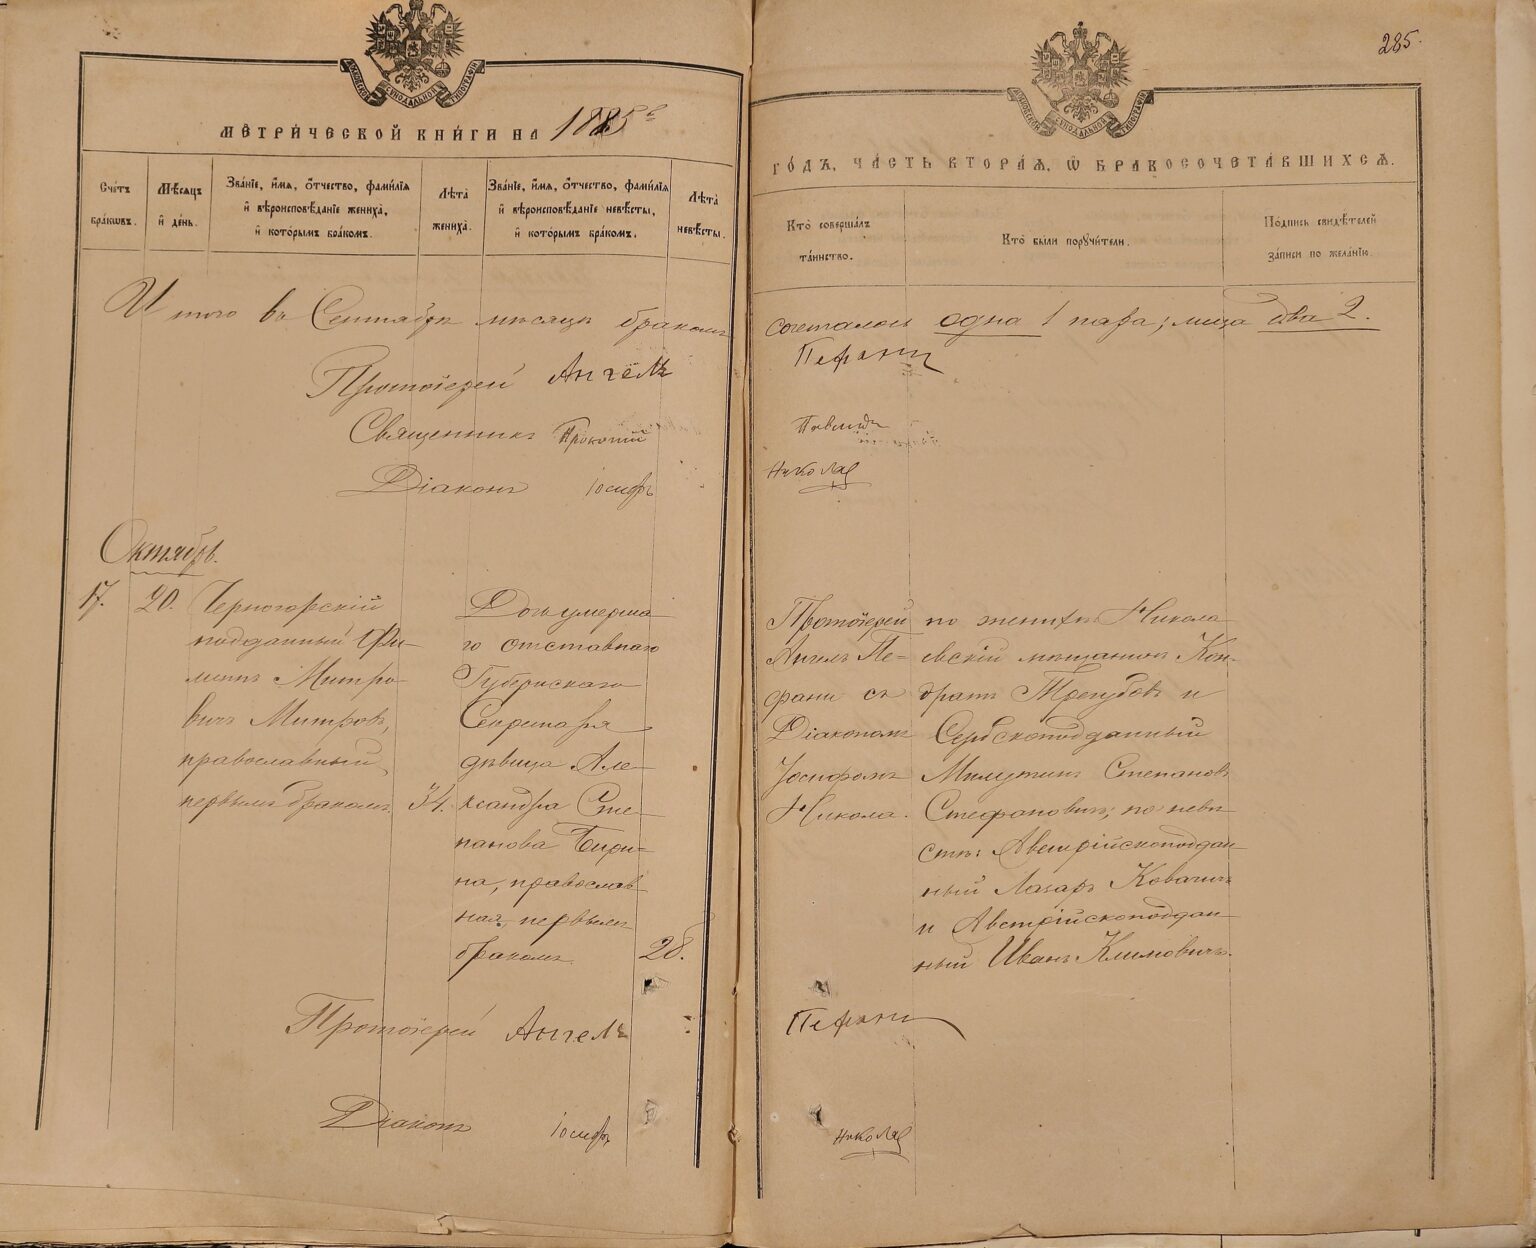 285.
МОСКОВСКОЙ СѴНОДАЛЬНОЙ ТИПОГРАФІИ
МОСКОВСКОЙ СѴНОДАЛЬНОЙ ТИПОГРАФІИ
МЕТРИ́ЧЕСКОЙ КНИ́ГИ НА 1885 й
ГО́ДЪ, ЧА́СТЬ ВТОРА́Ѧ, Ѡ БРАКОСОЧЕТА́ВШИХСѦ.
Сче́тъ бра́кѡвъ.
Мѣ́сѧцъ и҆ де́нь.
Зва́нїе, и҆́мѧ, ѻ҆́тчество, фами́лїѧ и҆ вѣроисповѣ́данїе жениха̀, и҆ кото́рымъ бра́комъ.
Лѣ́та жениха̀.
Зва́нїе, и҆́мѧ, ѻ҆́тчество, фами́лїѧ и҆ вѣроисповѣ́данїе невѣ́сты, и҆ кото́рымъ бра́комъ.
Лѣ́та невѣ́сты.
Кто̀ соверша́лъ та́инство.
Кто̀ бы́ли порꙋчи́тели.
По́дпись свидѣ́телей за́писи по жела́нїю.
Итого въ Сентябрѣ мѣсяцѣ бракомъ сочетались одна 1 пара; лица два 2.
Протоіерей Ангелъ Пефани
Священникъ Прокопій
Діаконъ Іосифъ Никола
Октябрь.
17. 20.
Черногорскій
подданный Фи-
липъ Митро-
вичъ Митровъ,
православный,
первымъ бракомъ. 34.
Дочь умерша-
го отставнаго
Губернскаго
Секретаря
дѣвица Але-
ксандра Сте-
панова Бири-
на, православ-
ная, первымъ
бракомъ. 28.
Протоіерей
Ангелъ Пе-
фани съ
Діакономъ
Іосифомъ
Никола.
по женихѣ: Никола-
евскій мѣщанинъ Кон-
дратъ Трегубовъ и
Сербскоподданный
Милутинъ Степановъ
Стефановичъ; по невѣ-
стѣ: Австрійскоподдан-
ный Лазарь Ковачичъ
и Австрійскоподдан-
ный Иванъ Климовичъ.
Протоіерей Ангелъ Пефани
Діаконъ Іосифъ Никола